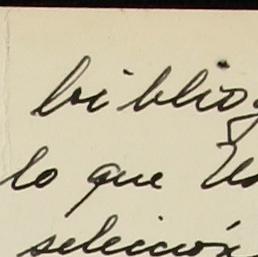 bibliog
lo que Us
selección